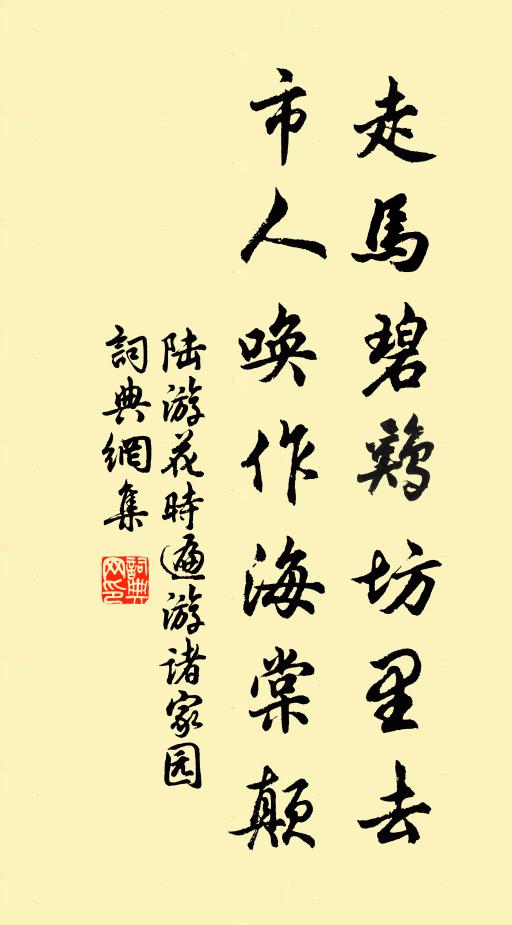 走馬碧鷄坊里去
市人唤作海棠顛
陆游花時遍游诸家园
詞典網集
詞典網印